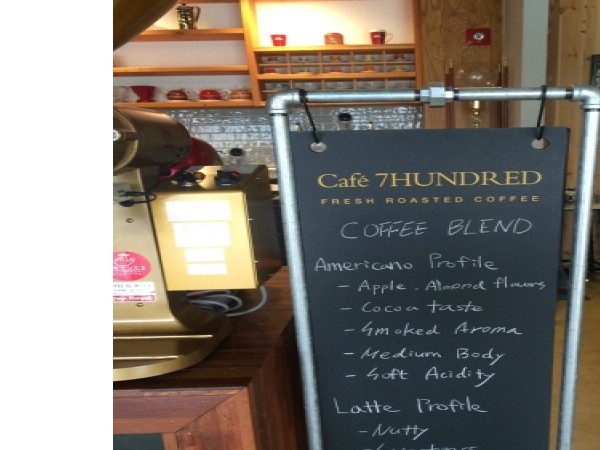 Café 7HUNDRED
FRESH ROASTED COFFEE
COFFEE BLEND
Americano Profile
- Apple. Almond flavors
- Cocoa taste
- Smoked Aroma
- Medium Body
- Soft Acidity
Latte Profile
- Nutty